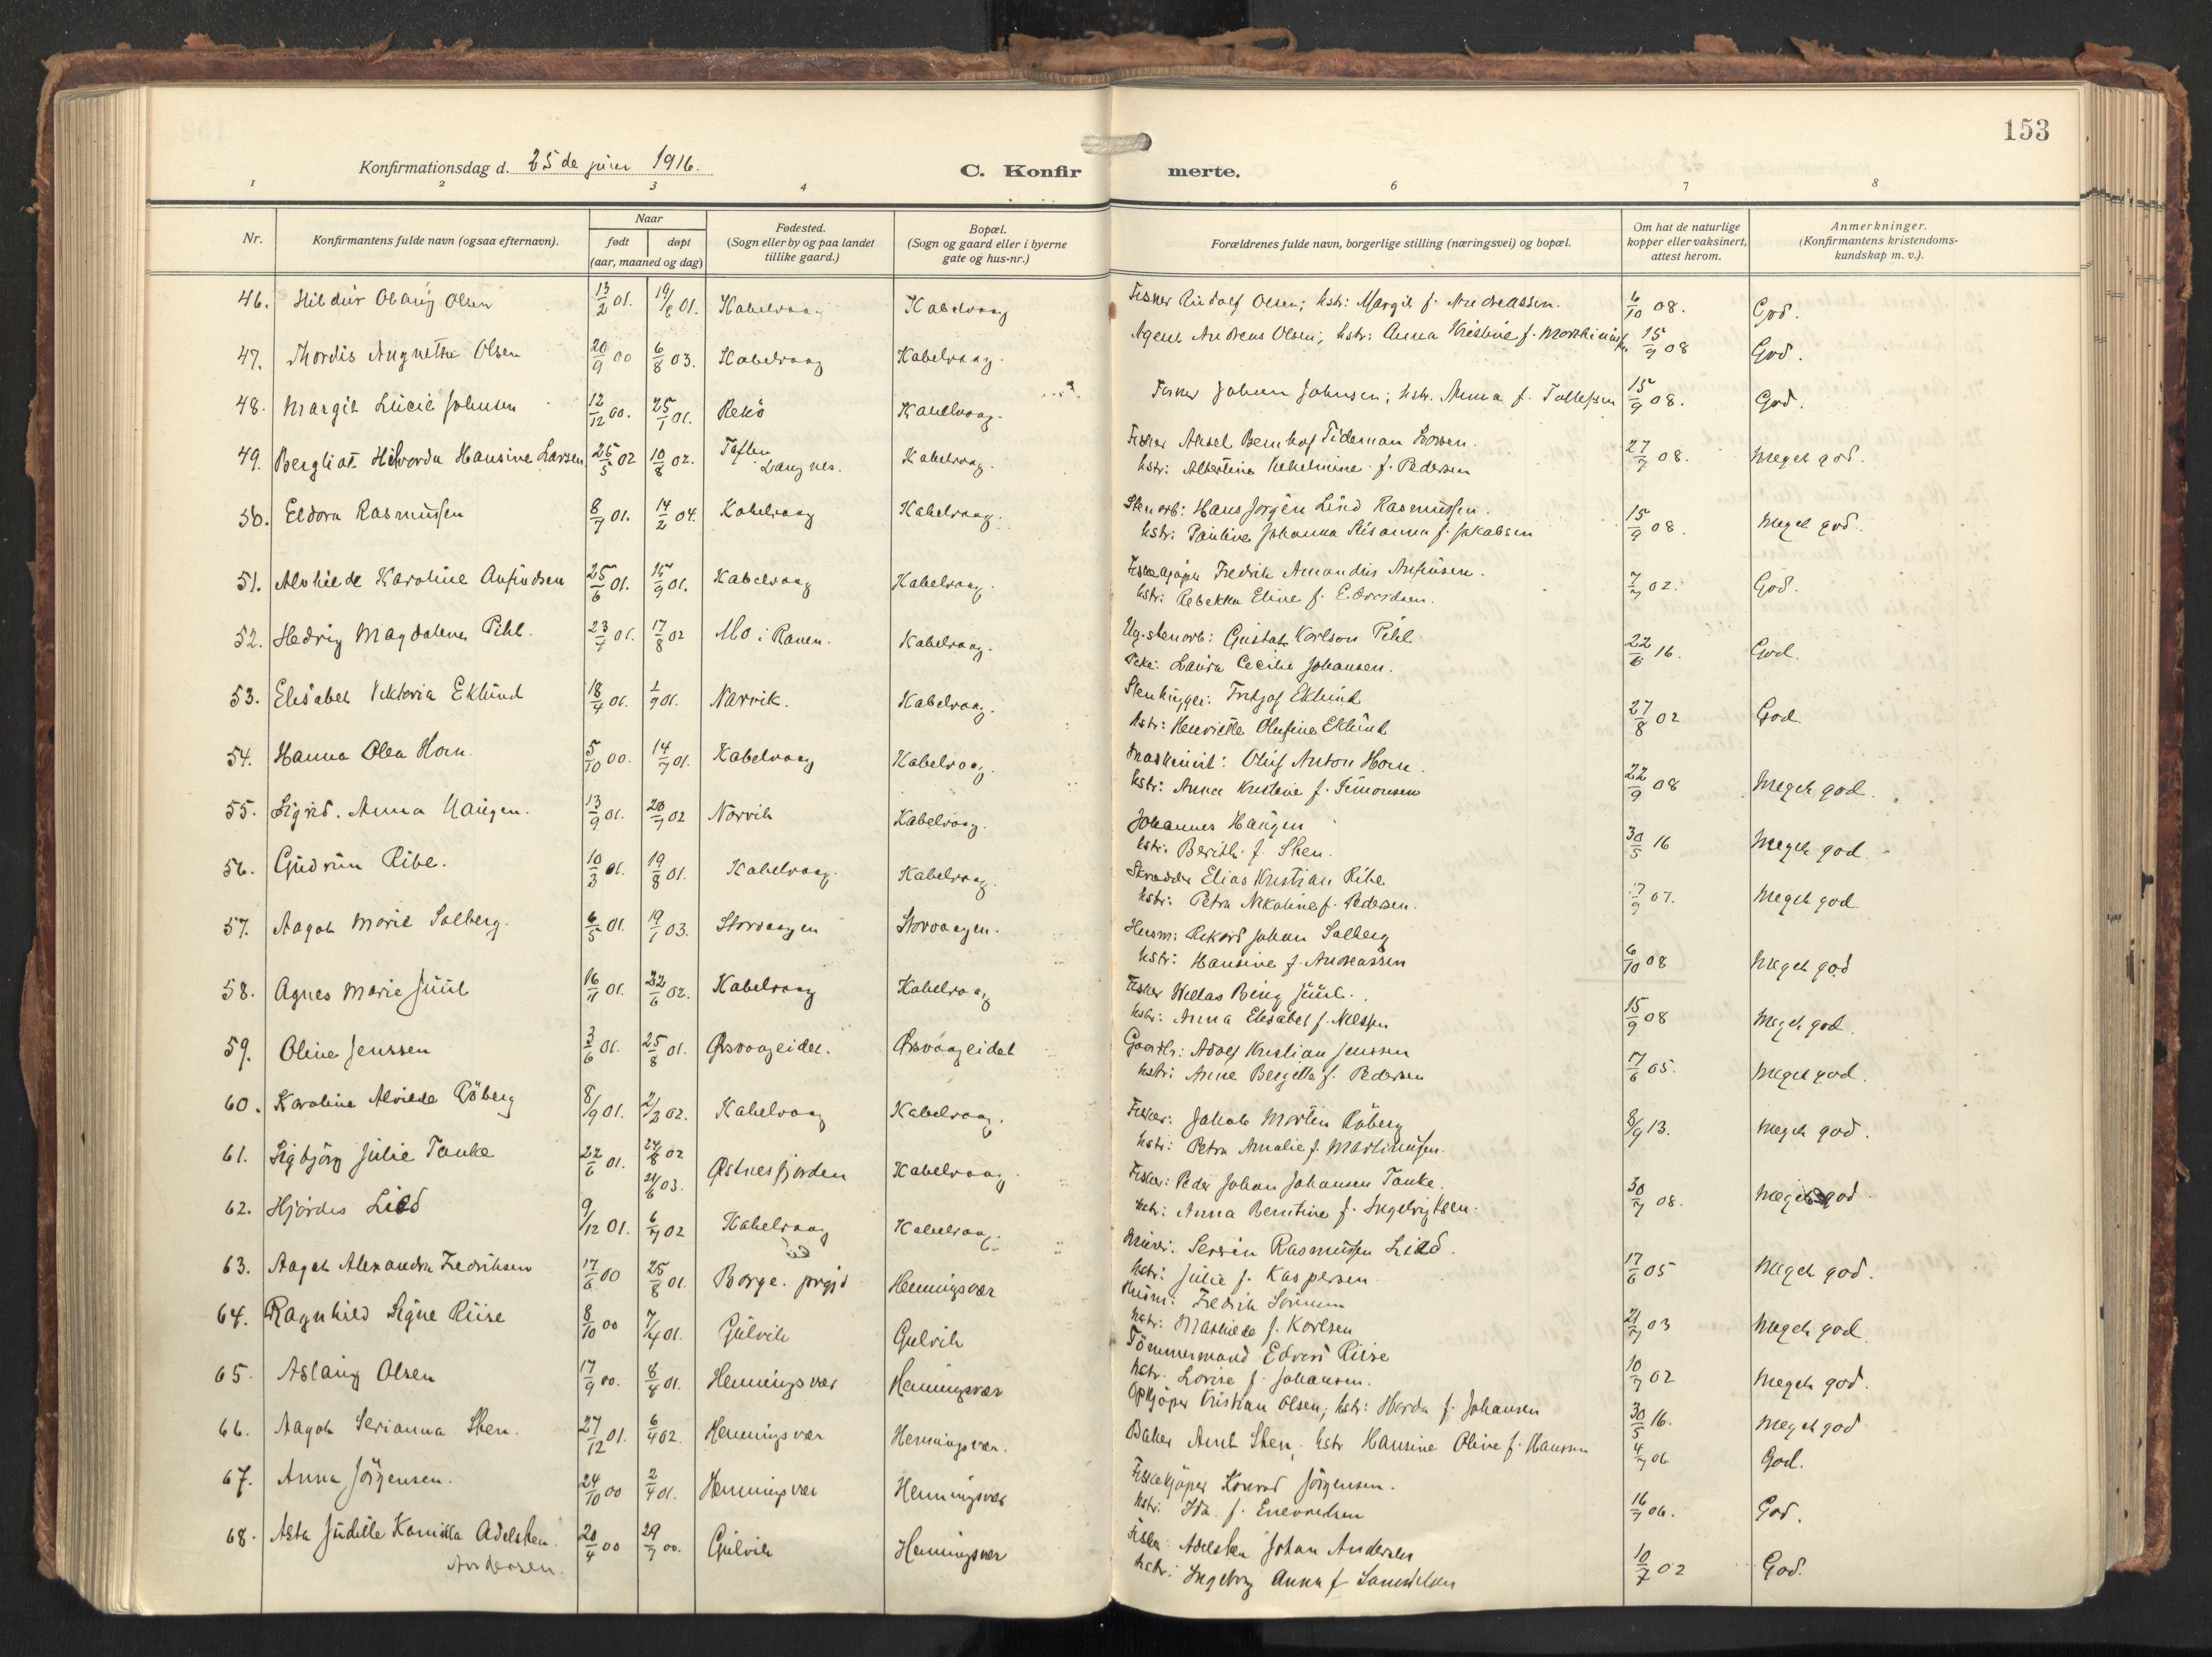 153
Konfirmationsdag d. 25 de juni 1916.
C. Konfirmerte.
1 2 3 4 6 7 8
Nr.
Konfirmantens fulde navn (ogsaa efternavn).
Naar
født døpt
(aar, maaned og dag)
Fødested.
(Sogn eller by og paa landet
tillike gaard.)
Bopæl.
(Sogn og gaard eller i byerne
gate og hus-nr.)
Forældrenes fulde navn, borgerlige stilling (næringsvei) og bopæl.
Om hat de naturlige
kopper eller vaksinert,
attest herom.
Anmerkninger.
(Konfirmantens kristendoms-
kundskap m. v.).
46. Hildur Olaug Olsen 13/2 01. 19/6 01. Kabelvaag Kabelvaag Fisker Rudolf Olsen; hstr: Margit f. Andreassen. 6/10 08. God.
47. Thordis Augnethe Olsen 20/9 00 6/8 03. Kabelvaag Kabelvaag. Agent Andreas Olsen; hstr: Anna Kristine f. 15/9 08 God.
48. Margit Lucie Johnsen 12/12 00. 25/1 01. Rekö Kabelvaag. Fisker Johan Johnsen; hstr. Anna f. Tollefsen 15/9 08. God.
49. Bergliot Hilvorda Hansine Larsen 25/5 02 10/8 02. Langnes. Kabelvaag. Fisker Aksel Bernhof Tideman Larsen.
hstr: Albertine f. Pedersen 27/7 08. Meget god.
50. Eldora Rasmussen 8/7 01. 14/2 04. Kabelvaag Kabelvaag. Stenarb: Hans Jørgen Lind Rasmussen.
hstr: Pauline Johanna Susanna f. Jakobsen 15/9 08. Meget god.
51. Alvhilde Karoline Anfindsen 25/6 01. 15/9 01. Kabelvaag Kabelvaag. Fiskekjøper Fredrik Amandus Anfinsen.
hstr: Rebekka Eline f. Edvardsen. 7/7 02. God.
52. Hedvig Magdalena Pihl. 23/4 01. 17/8 02 Mo i Ranen. Kabelvaag. Ug. stenarb: Gustav Karlson Pihl
Pike: Laura Cecilie Johansen. 22/6 16. God.
53. Elisabet Viktoria Eklund 18/4 01. 1/9 01. Narvik. Kabelvaag. Stenhugger: Fritjof Eklund
hstr: Henriette Olufine Eklund 27/8 02 God.
54. Hanna Olea Horn. 5/10 00. 14/7 01. Kabelvaag Kabelvaag. Maskinist: Oluf Anton Horn.
hstr: Anna Kristine f. Simonsen 22/9 08 Meget god.
55. Sigrid. Anna Haugen. 13/9 01. 20/7 02 Narvik Kabelvaag. Johannes Haugen
hstr. Berith f. Sten. 30/5 16 Meget god.
56. Gudrun Ribe. 10/3 01. 19/8 01. Kabelvaag. Kabelvaag. Skrædder Elias Kristian Ribe
hstr: Petra Nikoline f. Pedersen. 7/9 07. Meget god.
57. Aagot Marie Solberg. 6/5 01. 19/1 03. Storvaagen Storvaagen. Husm: Rikard Johan Solberg
hstr: Hansine f. Andreassen 6/10 08 Meget god
58. Agnes Marie Juul 16/11 01. 22/6 02. Kabelvaag Kabelvaag Fisker Willas Bing Juul.
hstr: Anna Elisabet f. Nilssen 15/9 08 Meget god.
59. Oline Jenssen 3/6 01. 25/8 01. Ørsvaageidet. Ørsvaageidet Gaardbr: Adolf Kristian Jenssen
hstr: Anne Bergitte f. Pedersen 17/6 05. Meget god.
60. Karoline Alvilde Röberg 8/9 01. 2/2 02. Kabelvaag Kabelvaag. Fisker: Jakob Martin Röberg
hstr: Petra Amalie f. Martinusen. 8/9 13. Meget god.
61. Sigbjørg Julie Tanke 22/6 01. 24/8 02 21/6 03. Østnesfjorden Kabelvaag. Fisker: Peder Johan Johansen Tanke.
hstr: Anna Berntine f. Ingebrigtsen. 30/7 08. Meget god.
62. Hjørdis Lied 9/12 01. 6/7 02 Kabelvaag Kabelvaag. Murer: Severin Rasmussen Lied.
hstr: Julie f. Kaspersen. 17/6 05 Meget god.
63. Aagot Alexandra Fredriksen 17/6 00 25/8 01. Borge. prgjd Henningsvær Husm: Fredrik
hstr: Mathilde f. Karlsen 21/7 03 Meget god.
64. Ragnhild Signe Riise 8/10 00 7/4 01. Gulvik Gulvik Tömmermand Edvard Riise
hstr. Lovise f. Johansen. 10/7 02 Meget god.
65. Aslaug Olsen 17/9 00. 8/4 01. Henningsvær Henningsvær Opkjøper Kristian Olsen; hstr: Herda f. Johansen 30/5 16. Meget god
66. Aagot Serianna Sten. 27/12 01. 6/4 02. Henningsvær Henningsvær. Baker Arnt Sten; hstr Hansine Oline f. Hansen 4/7 06 God.
67. Anna Jörgensen. 24/10 00 2/4 01. Henningsvær Henningsvær Fiskekjøper Konrad Jörgensen.
hstr: Ida f. Enevoldsen 16/7 06. God.
68. Asta Judithe Kamilla Adelsten. Andersen. 20/4 00 29/7 00. Gulvik Henningsvær Fisker: Adelsten Johan Andersen
hstr: Ingeborg Anna f. Samuelsen 10/7 02 God.